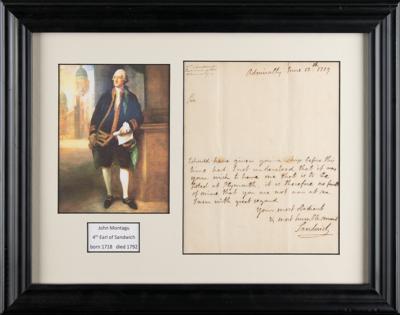 Admiralty June 12th
Sir
I should have given you a Ship before this
time had I not understood that it was
your wish to have one that is to be
fitted at Plymouth, it is therefore no fault
of mine that you are not now at sea
I am with great regard
Your most obedient
& most humble servant
Sandwich
John Montagu
4th Earl of Sandwich
born 1718 died 1792